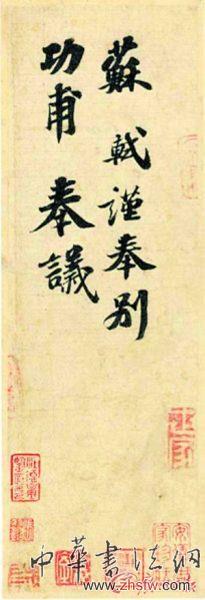 蘇軾謹奉别
功甫奉議
中華書法網
www.zhsfw.com